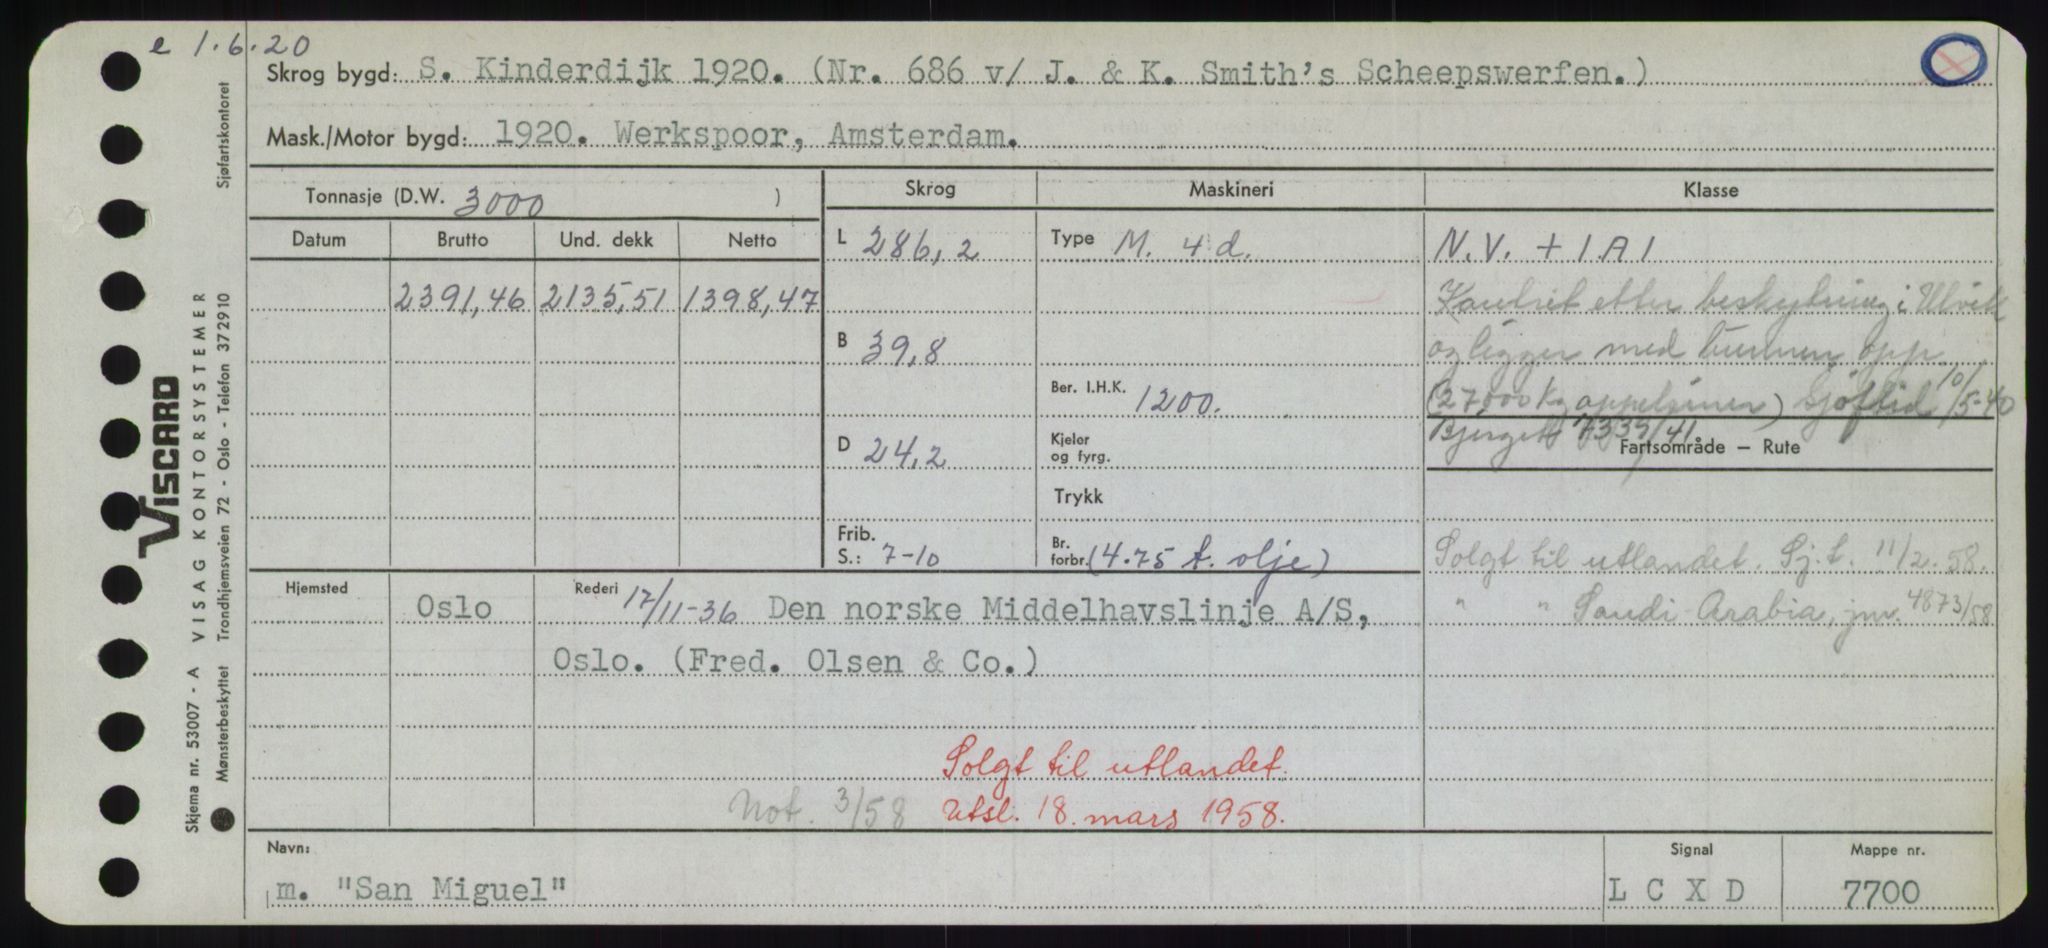 e 1.6.20
Skrog bygd: S. Kinderdijk 1920. (Nr. 686 v/ J. & K. Smith's Scheepswerfen.)
Mask./Motor bygd: 1920. Werkspoor, Amsterdam.
Tonnasje (D.W. 3000 )
Skrog
Maskineri
Klasse
Datum
Brutto
Und. dekk
Netto
2391,46
2135,51
1398,47
L 286,2
B 39,8
D 24,2
Frib.
S.: 7-10
Type M. 4 d.
Ber. I.H.K. 1200.
Kjeler
og fyrg.
Trykk
Br.
forbr. (4.75 t. olje)
N.V. + 1A1
Kantret etter beskytning i Ulvik
og ligger med bunnen opp
(27000 kg appelsiner) Sjøftid 10/5-40
Berget 7339/41
Fartsområde – Rute
Solgt til utlandet. Sj.t. 11/2.58.
" " Saudi-Arabia, jnr. 4873/58.
Hjemsted
Oslo
Rederi 17/11-36 Den norske Middelhavslinje A/S,
Oslo. (Fred. Olsen & Co.)
Solgt til utlandet.
Not. 3/58 Utsl. 18. mars 1958.
Navn:
m. "San Miguel"
Signal
L C X D
Mappe nr.
7700
VISCARD
Skjema nr. 53007 - A VISAG KONTORSYSTEMER
Mønsterbeskyttet Trondhjemsveien 72 - Oslo - Telefon 372910
Sjøfartskontoret